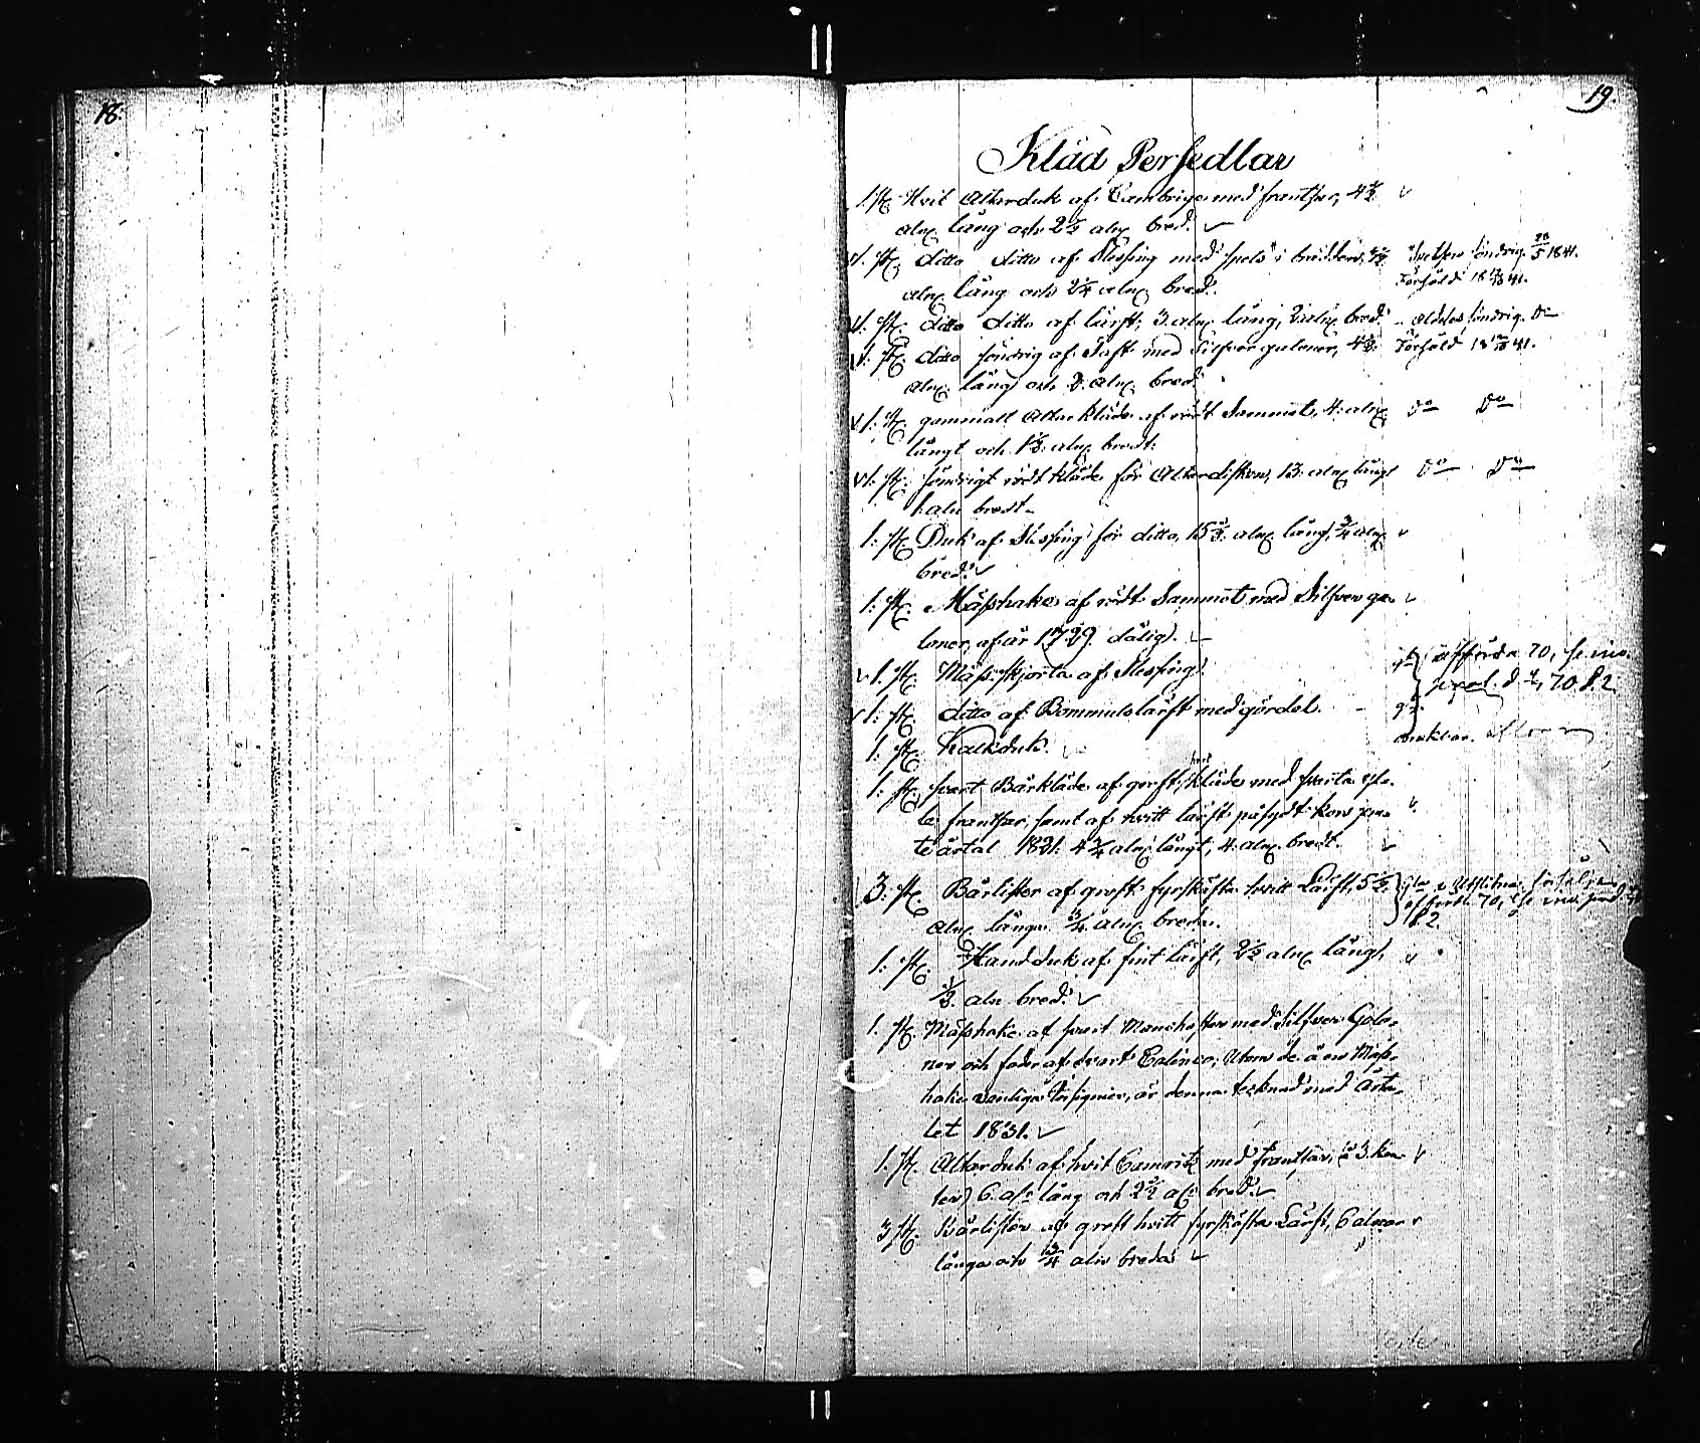 18.
19.
Kläd Persedlar
1. st. Hvit Altarduk af Cambrige med frantsar, 4½
alnr lång och 2½ alnr bred.
1. st. ditto ditto af Slesing med spets i brädden, 3½
alnr lång och 2¼ alnr bred. söndrig 20/5 1841.
Försåld 18 41.
1. st. ditto ditto af lärft, 3. alnr lång, 2 alnr bred. aldeles söndrig. Do
1. st. ditto söndrig af Taft med Silfver galoner, 4½ Försåld 18 41.
alnr lång och 2. alnr bred.
1. st. gammalt Altarkläde af rödt Sammet, 4. alnr Do Do
långt och 1½ alnr bredt.
1. st. söndrigt rödt kläde för Altardisken, 13. alnr långt Do Do
1. aln bredt
1. st. Duk af Slesing för ditto, 15½ alnr lång, ¾ alnr
bred.
1. st. Mässhake af rödt Sammet med Silfver ga-
loner, af år 1729. dålig.
1. st. Mässskjorta af Slesing.
afförda 70, se inv.
70 § 2
1. st. ditto af Bommulslärft med gördel.
1. st. Kalkduk.
1. st. svart Bårkläde af groft kläde med svarta yl-
le frantsar samt af hvitt lärft påsydt kors jem-
te årtal 1831. 4¾ alnr långt, 4. alnr bredt.
3. st. Bårlister af groft fyrskäfta hvitt Lärft, 5½
alnr långa ¾ alnr breda.
afförda 70, se inv.
§ 2.
1. st. Handduk af fint lärft, 2½ alnr lång,
½. aln bred.
1. st. Mässhake af svart Manchester med Silfver Galo-
ner och foder af svart Calinco; Utom de å en Mäss-
hake vanliga Insignier, är denna tecknad med Årta-
let 1831.
1. st. Altarduk af hvit Camrits med frantsar, (å 3. kan-
ter) 6. aln lång och 2½ aln bred.
3 st. Bårlister af groft hvitt fyrskäfta Lärft, 6 alnar
långa och ¾ aln breda